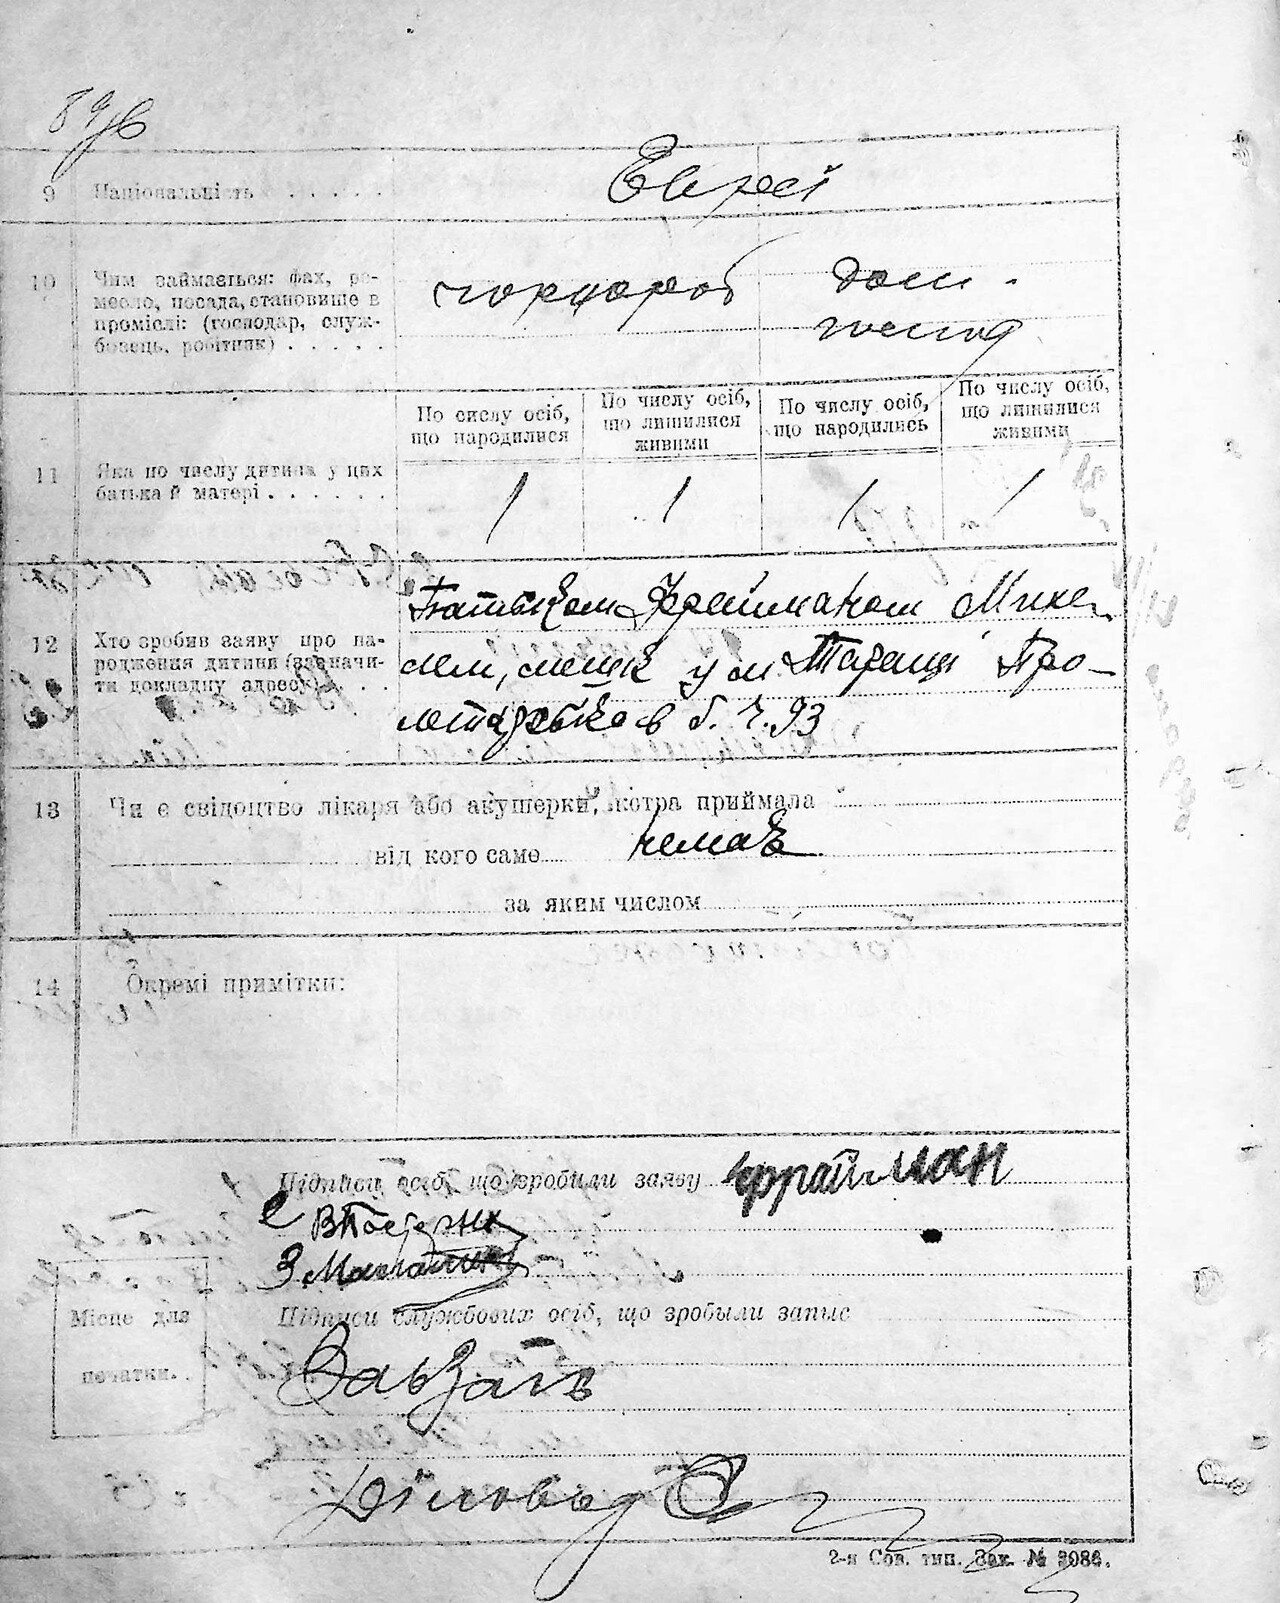 9 Національність . . . . . .
Євреї
10 Чим займається: фах, ре-
месло, посада, становище в
промislі: (господар, служ-
бовець, робітник) . . . . .
чорнороб
дом.
господ
По числу осіб, що народилися
По числу осіб, що лишилися живими
По числу осіб, що народились
По числу осіб, що лишилися живими
11 Яка по числу дитина у цих
батька й матері . . . . . .
1 1 1 1
12 Хто зробив заяву про на-
родження дитини (зазначи-
ти докладну адресу) . . .
Батьком Фрейтманом Михе-
лем, мешк у м. Таращі Про-
летарська б. ч. 93
13 Чи є свідоцтво лікаря або акушерки, котра приймала
від кого саме немає
за яким числом
14 Окремі примітки:
Підписи осіб, що зробили заяву
2
3
Місце для
печатки.
Підписи службових осіб, що зробыли запыс
ЗавЗагс
Діловод
2-я Сов. тип. Зак. № 3086.